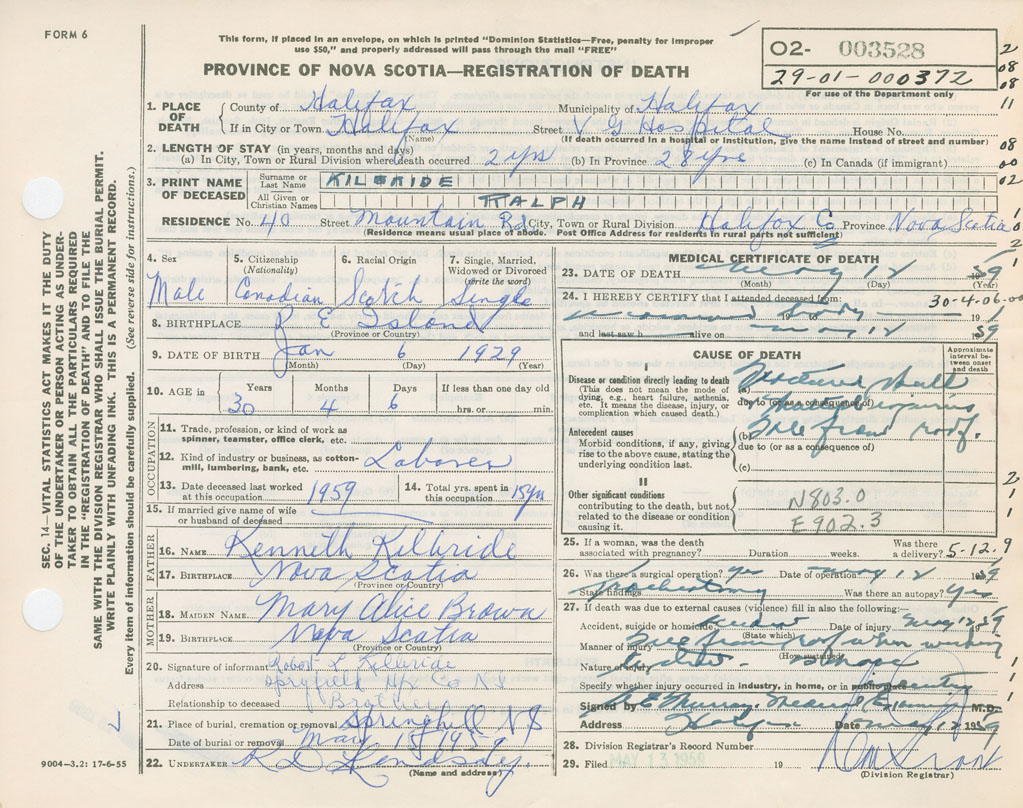 FORM 6
This form, if placed in an envelope, on which is printed "Dominion Statistics—Free, penalty for improper
use $50," and properly addressed will pass through the mail "FREE"
PROVINCE OF NOVA SCOTIA—REGISTRATION OF DEATH
O2- 003528
29-01-000372
For use of the Department only
2
08
08
11
08
00
02
1. PLACE OF DEATH
County of Halifax Municipality of Halifax
If in City or Town Halifax Street V G Hospital House No.
(Name) (If death occurred in a hospital or institution, give the name instead of street and number)
2. LENGTH OF STAY (in years, months and days)
(a) In City, Town or Rural Division where death occurred 2 yrs (b) In Province 28 yrs (c) In Canada (if immigrant)
3. PRINT NAME OF DECEASED
Surname or Last Name KILBRIDE
All Given or Christian Names RALPH
RESIDENCE No. 40 Street Mountain Rd City, Town or Rural Division Halifax Co Province Nova Scotia
(Residence means usual place of abode. Post Office Address for residents in rural parts not sufficient)
4. Sex 5. Citizenship (Nationality) 6. Racial Origin 7. Single, Married, Widowed or Divorced (write the word)
Male Canadian Scotch Single
8. BIRTHPLACE P E Island
(Province or Country)
9. DATE OF BIRTH Jan 6 1929
(Month) (Day) (Year)
10. AGE in Years Months Days If less than one day old
30 4 6 hrs. or min.
OCCUPATION
11. Trade, profession, or kind of work as spinner, teamster, office clerk, etc.
12. Kind of industry or business, as cotton-mill, lumbering, bank, etc. Laborer
13. Date deceased last worked at this occupation 1959
14. Total yrs. spent in this occupation 15 yrs
15. If married give name of wife or husband of deceased
FATHER
16. NAME Kenneth Kilbride
17. BIRTHPLACE Nova Scotia
(Province or Country)
MOTHER
18. MAIDEN NAME Mary Alice Brown
19. BIRTHPLACE Nova Scotia
(Province or Country)
20. Signature of informant Robert L Kilbride
Address Spryfield Hfx Co N S
Relationship to deceased Brother
21. Place of burial, cremation or removal Springhill N S
Date of burial or removal May 15 1959
22. UNDERTAKER
(Name and address)
MEDICAL CERTIFICATE OF DEATH
23. DATE OF DEATH May 12 1959
(Month) (Day) (Year)
24. I HEREBY CERTIFY that I attended deceased from: 30-4-06-00
body 19
and last saw h alive on May 12 1959
CAUSE OF DEATH
Approximate interval between onset and death
I
Disease or condition directly leading to death
(This does not mean the mode of dying, e.g., heart failure, asthenia, etc. It means the disease, injury, or complication which caused death.)
(a) Fractured skull
due to (or as a consequence of)
Antecedent causes
Morbid conditions, if any, giving rise to the above cause, stating the underlying condition last.
(b) Fall from roof.
due to (or as a consequence of)
(c)
II
Other significant conditions
contributing to the death, but not related to the disease or condition causing it.
N803.0
E902.3
25. If a woman, was the death associated with pregnancy? Duration weeks. Was there a delivery? 5-12.9
26. Was there a surgical operation? yes Date of operation May 12 1959
State findings Tracheotomy Was there an autopsy? Yes
27. If death was due to external causes (violence) fill in also the following:—
Accident, suicide or homicide Accident Date of injury May 12 1959
(State which)
Manner of injury Fall from roof when working
(How sustained)
Nature of injury
Specify whether injury occurred in industry, in home, or in public place
Signed by E Murray M.D.
Address Date May 1959
28. Division Registrar's Record Number
29. Filed MAY 13 1959 19
(Division Registrar)
SEC. 14—VITAL STATISTICS ACT MAKES IT THE DUTY
OF THE UNDERTAKER OR PERSON ACTING AS UNDER-
TAKER TO OBTAIN ALL THE PARTICULARS REQUIRED
IN THE "REGISTRATION OF DEATH" AND TO FILE THE
SAME WITH THE DIVISION REGISTRAR WHO SHALL ISSUE THE BURIAL PERMIT.
WRITE PLAINLY WITH UNFADING INK. THIS IS A PERMANENT RECORD.
Every item of information should be carefully supplied. (See reverse side for instructions.)
9004-3.2: 17-6-55